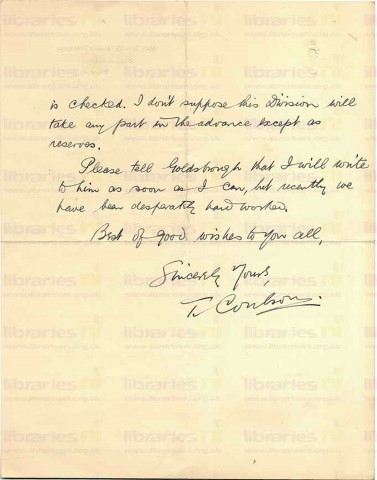 is checked. I don't suppose this Division will
take any part in the advance except as
reserves.
Please tell Goldsbrough that I will write
to him as soon as I can, but recently we
have been desperately hard worked.
Best of good wishes to you all,
Sincerely Yours
T. Coulson.